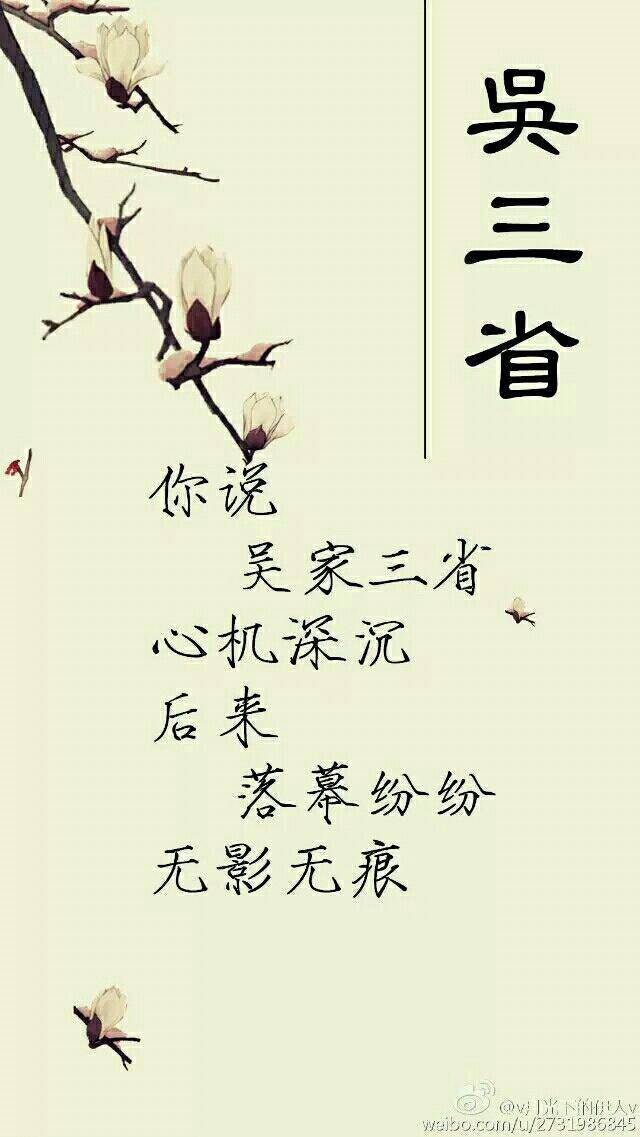 吳三省
你说
吴家三省
心机深沉
后来
落幕纷纷
无影无痕
@v月光下的伊人v
weibo.com/u/2731986845